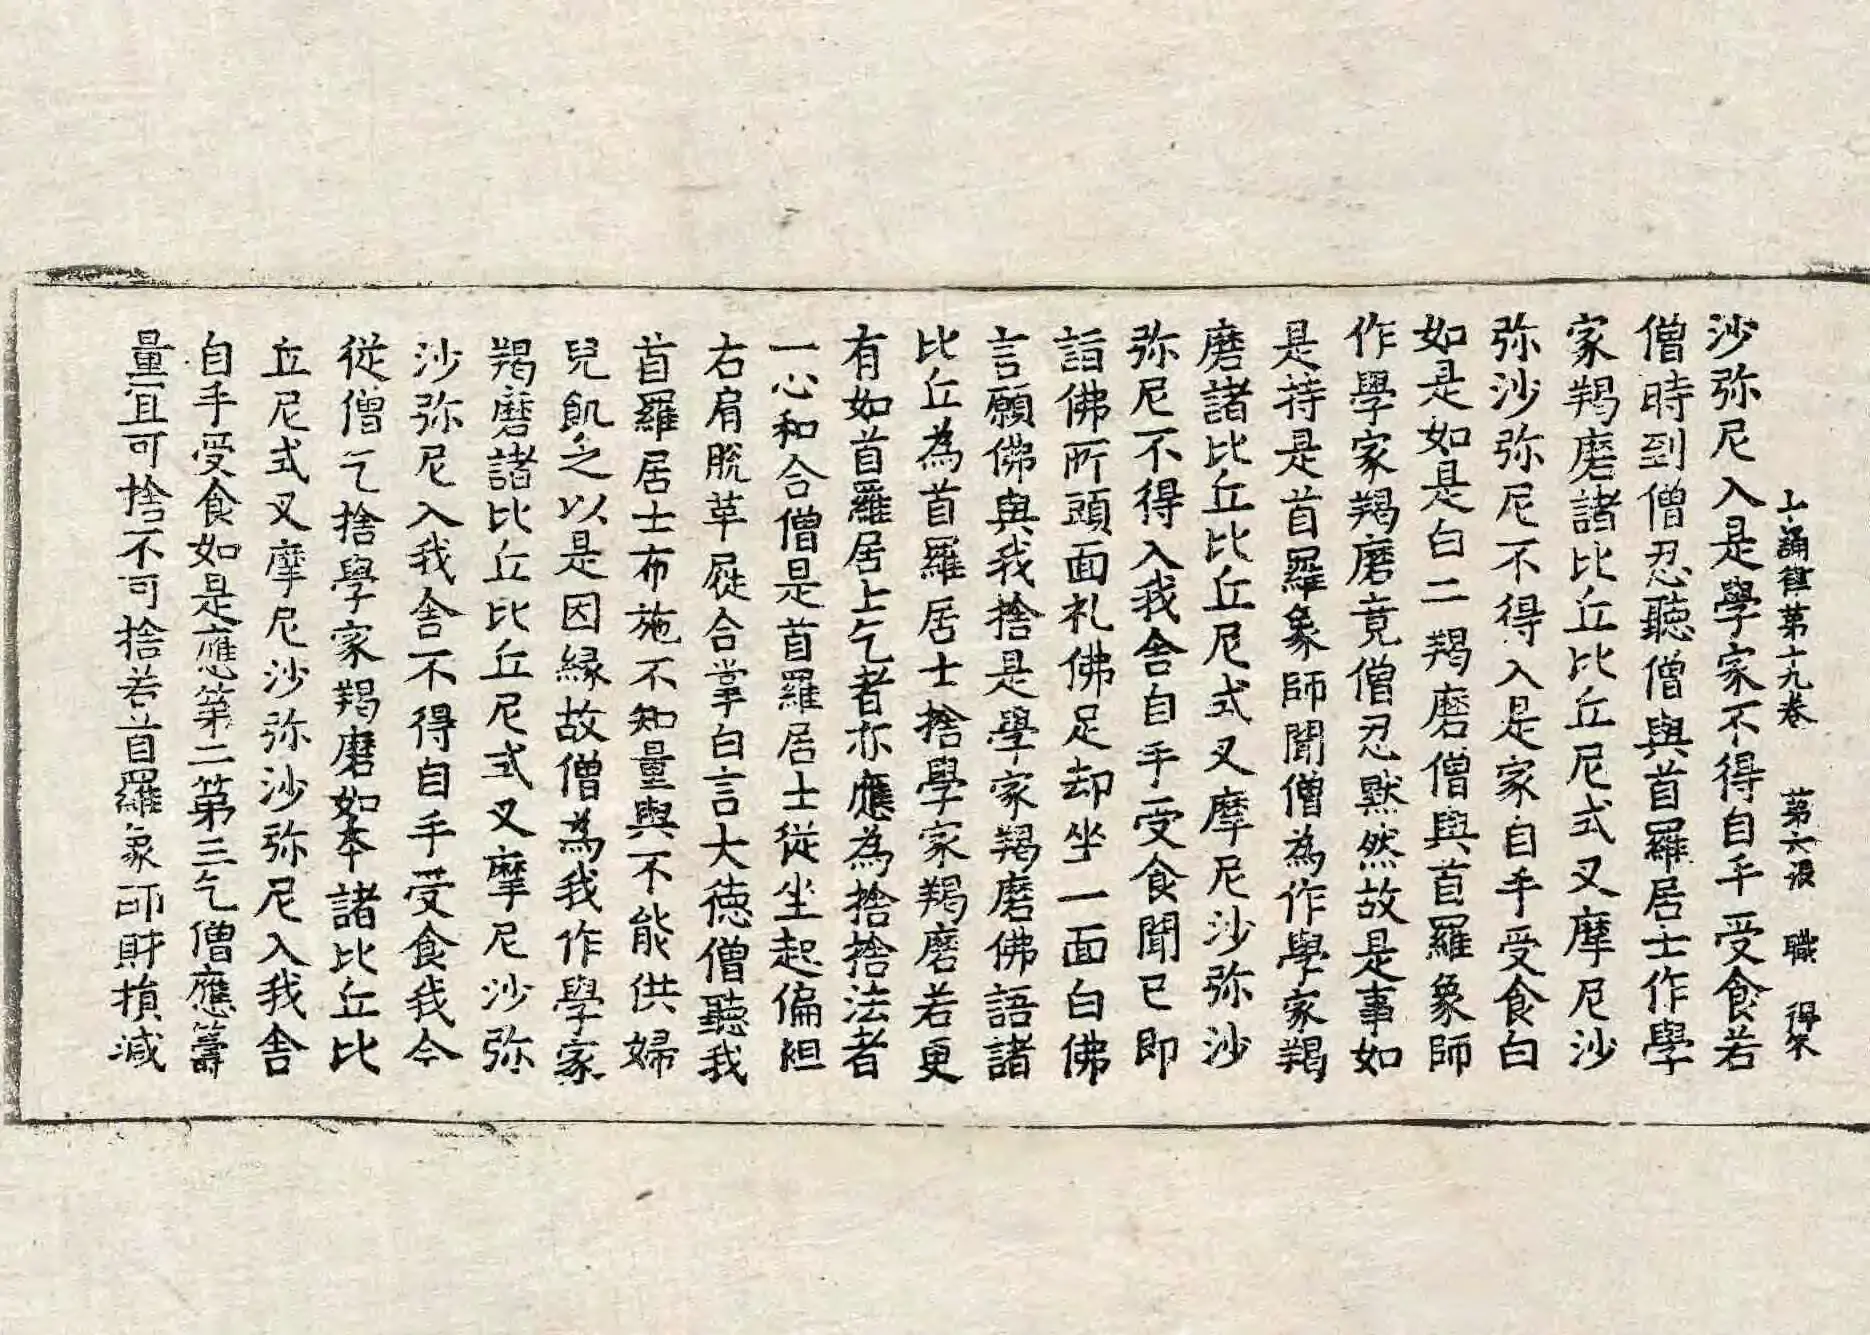 十誦律第十九卷　第六張　職　得宋
沙弥尼入是學家不得自手受食若
僧時到僧忍聽僧與首羅居士作學
家羯磨諸比丘比丘尼式叉摩尼沙
弥沙弥尼不得入是家自手受食白
如是如是白二羯磨僧與首羅象師
作學家羯磨竟僧忍黙然故是事如
是持是首羅象師聞僧為作學家羯
磨諸比丘比丘尼式叉摩尼沙弥沙
弥尼不得入我舍自手受食聞已即
詣佛所頭面礼佛足却坐一面白佛
言願佛與我捨是學家羯磨佛語諸
比丘為首羅居士捨學家羯磨若更
有如首羅居士乞者亦應為捨捨法者
一心和合僧是首羅居士從坐起偏袒
右肩脫革屣合掌白言大德僧聽我
首羅居士布施不知量與不能供婦
兒飢乏以是因緣故僧為我作學家
羯磨諸比丘比丘尼式叉摩尼沙弥
沙弥尼入我舍不得自手受食我今
從僧乞捨學家羯磨如本諸比丘比
丘尼式叉摩尼沙弥沙弥尼入我舍
自手受食如是應第二第三乞僧應籌
量宜可捨不可捨若首羅象師財損減